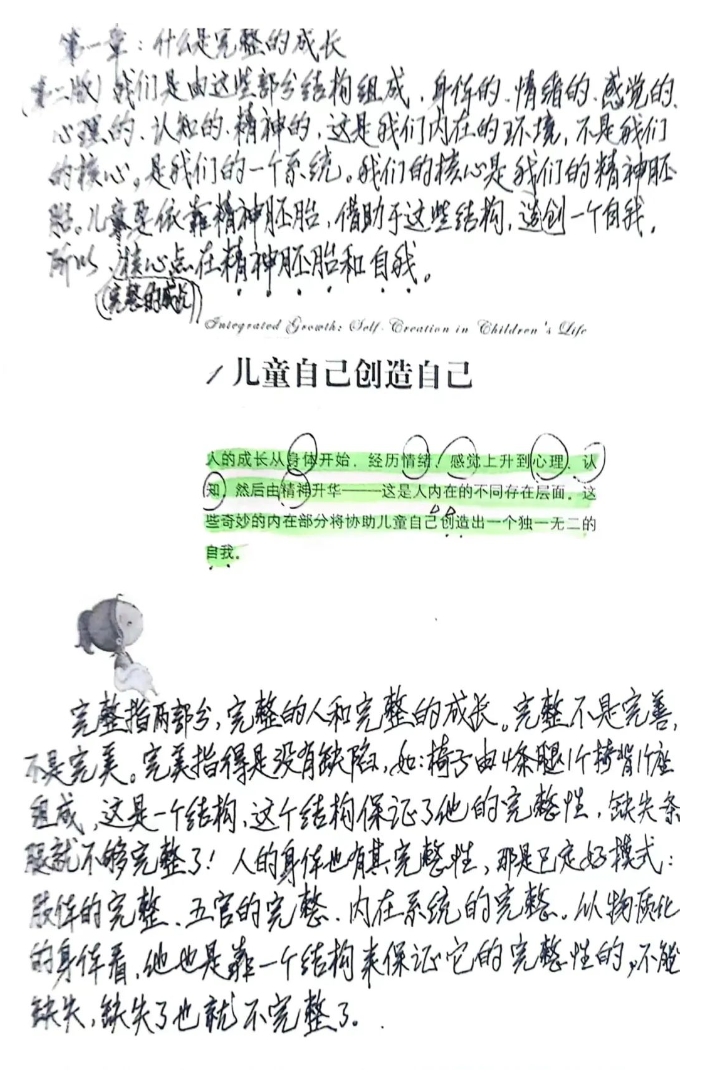 第一章：什么是完整的成长
(第二版) 我们是由这些部分结构组成，身体的、情绪的、感觉的、
心理的、认知的、精神的，这是我们内在的环境，不是我们
的核心，是我们的一个系统。我们的核心是我们的精神胚
胎。儿童要依靠精神胚胎，借助于这些结构，造创一个自我。
所以，核心点在精神胚胎和自我。
(完整的成长)
Integrated Growth: Self-Creation in Children's Life
儿童自己创造自己
人的成长从身体开始，经历情绪、感觉上升到心理、认
知，然后由精神升华——这是人内在的不同存在层面。这
些奇妙的内在部分将协助儿童自己创造出一个独一无二的
自我。
完整指两部分，完整的人和完整的成长。完整不是完善，
不是完美。完美指得是没有缺陷，如：椅子由4条腿1个椅背1个座
组成，这是一个结构，这个结构保证了他的完整性，缺失条
腿就不够完整了！人的身体也有其完整性，那是已定好模式：
肢体的完整、五官的完整、内在系统的完整。从物质化
的身体看，他也是靠一个结构来保证它的完整性的，不能
缺失，缺失了也就不完整了。